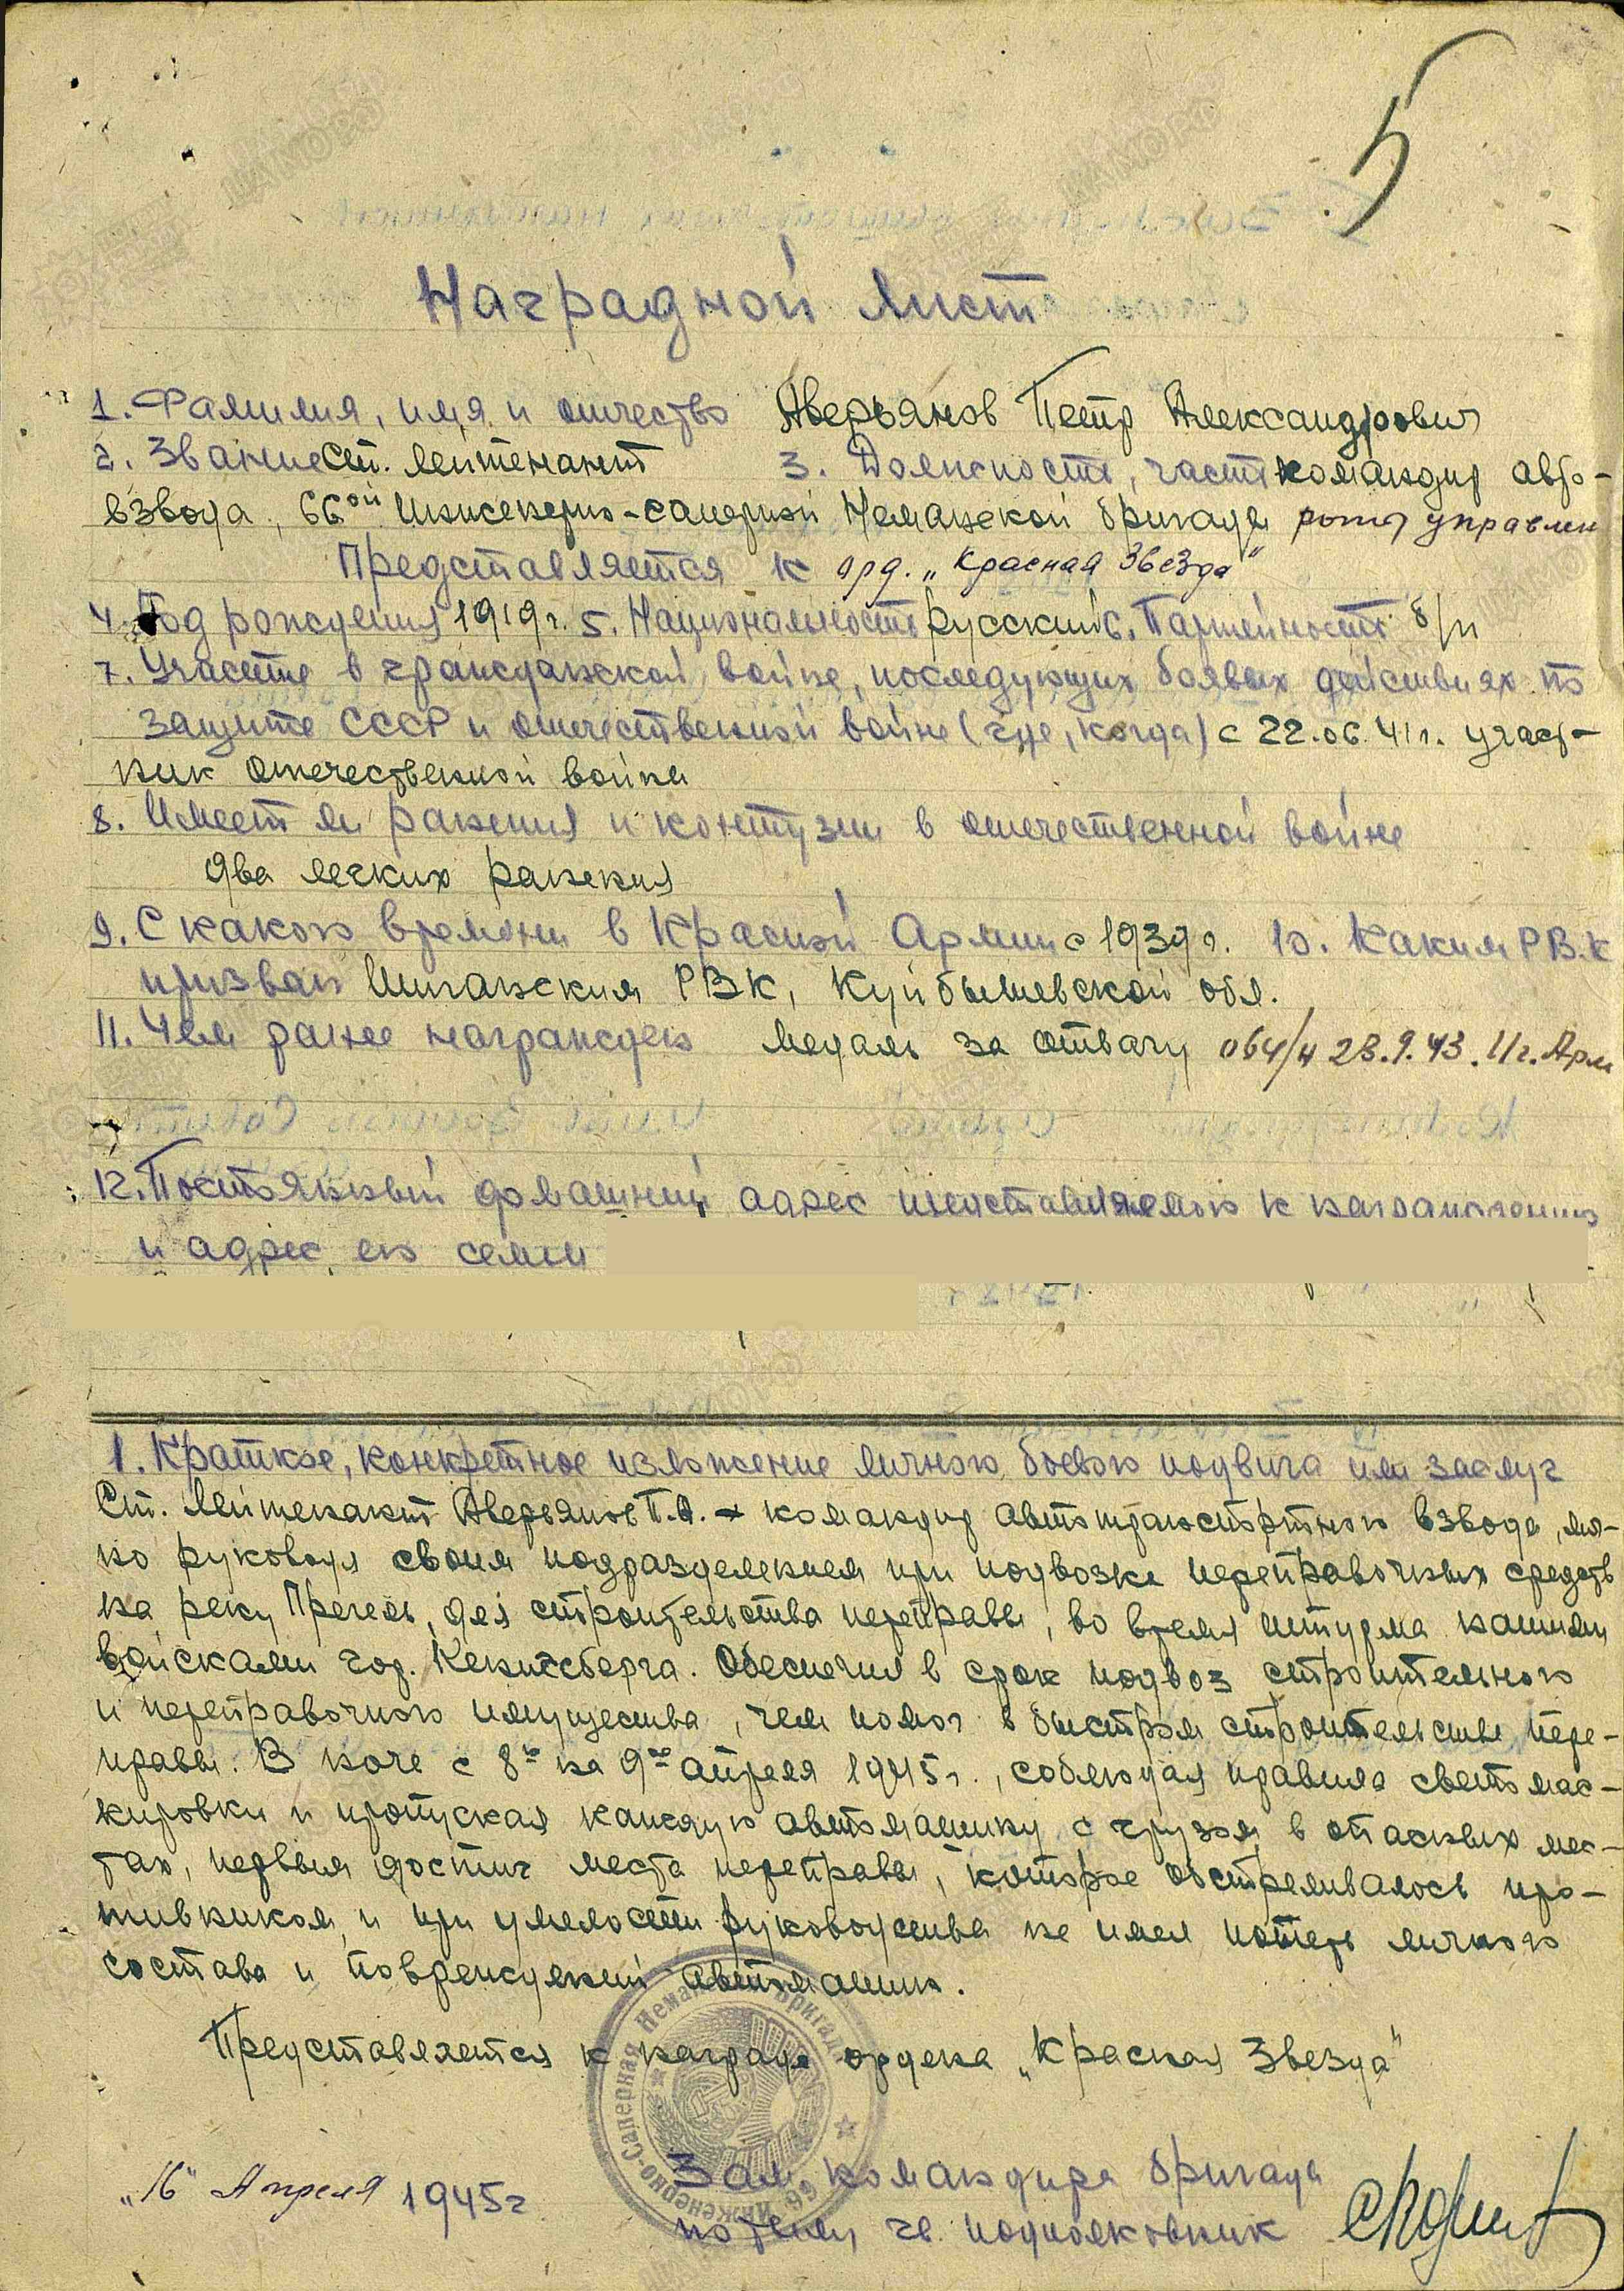 5
Наградной лист
1. Фамилия, имя и отчество Аверьянов Петр Александрович
2. Звание Ст. лейтенант 3. Должность, часть командир авто-
взвода, 66ой Инженерно-саперной Неманской бригады роты управлен
Представляется к орд. „Красная Звезда"
4. Год рождения 1919 г. 5. Национальность русский 6. Партийность б/п
7. Участие в гражданской войне, последующих боевых действиях по
защите СССР и отечественной войне (где, когда) с 22.06.41 г. участ-
ник отечественной войны
8. Имеет ли ранения и контузии в отечественной войне
два легких ранения
9. С какого времени в Красной Армии с 1939 г. 10. Каким РВ.К
призван РВК, Куйбышевской обл.
11. Чем ранее награжден Медаль за отвагу 064/н 23.9.43. 11 г. Арм
12. Постоянный домашний адрес представляемого к награждению
и адрес его семьи
1. Краткое, конкретное изложение личного боевого подвига или заслуг
Ст. Лейтенант Аверьянов П.А. - командир автотранспортного взвода, уме-
ло руководя своим подразделением при подвозке переправочных средств
на реку Прегель, для строительства переправы, во время штурма нашими
войсками гор. Кенигсберга. Обеспечил в срок подвоз строительного
и переправочного имущества, чем помог в быстром строительстве пере-
правы. В ночь с 8го на 9ое апреля 1945 г., соблюдая правила светомас-
кировки и пропуская каждую автомашину с грузом в опасных мес-
тах, первым достиг места переправы, которое обстреливалось про-
тивником и при умелости руководства не имел потерь личного
состава и повреждений автомашин.
Представляется к награде ордена „Красная Звезда"
66 Инженерно-Саперная Неманская бригада
„16" Апреля 1945 г
Зам. командира бригады
гв. подполковник